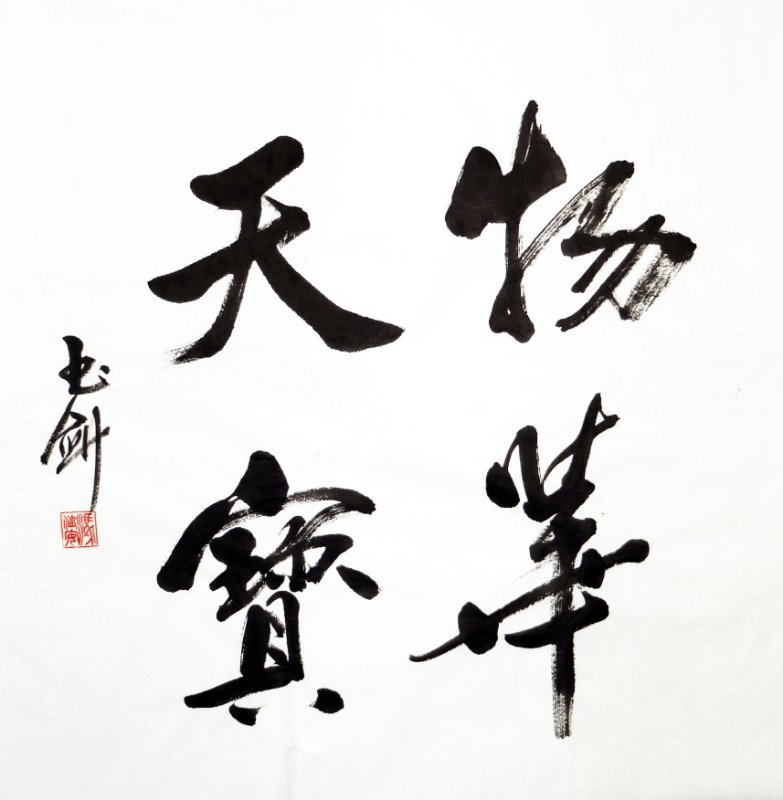 物華
天寶
玉剑